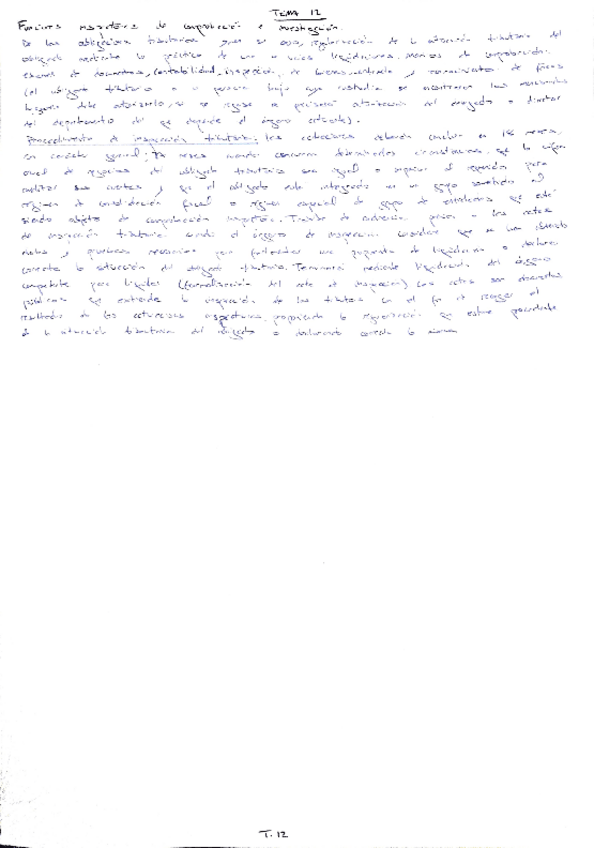 TEMA 12
Funciones inspectoras de comprobación e investigación.
De las obligaciones tributarias y en su caso, regularización de la situación tributaria del
obligado mediante la práctica de una o varias liquidaciones. Medios de comprobación:
examen de documentos, contabilidad, inspección de bienes, entrada y reconocimientos de fincas
(el obligado tributario o la persona bajo cuya custodia se encontraran las mencionadas
fincas debe autorizarlo, si se niega se precisará autorización del delegado o director
del departamento del que dependa el órgano actuante).
Procedimiento de inspección tributaria: las actuaciones deberán concluir en 18 meses,
con carácter general; 27 meses cuando concurran determinadas circunstancias, que la cifra
anual de negocios del obligado tributario sea igual o superior al requerido para
auditar sus cuentas y que el obligado esté integrado en un grupo sometido al
régimen de consolidación fiscal o régimen especial de grupo de entidades que esté
siendo objeto de comprobación inspectora. Trámite de audiencia previo a las actas
de inspección tributaria cuando el órgano de inspección considere que se han obtenido
datos y pruebas necesarios para fundamentar una propuesta de liquidación o declarar
correcta la situación del obligado tributario. Terminará mediante liquidación del órgano
competente para liquidar (formalización del acta de inspección) Las actas son documentos
públicos que extiende la inspección de los tributos con el fin de recoger el
resultado de las actuaciones inspectoras, proponiendo la regularización que estime procedente
de la situación tributaria del obligado o declarando correcta la misma
T.12